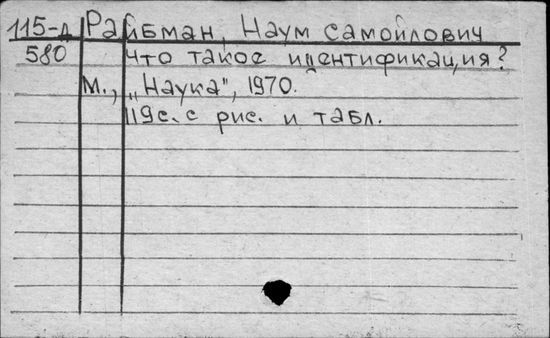 115-д Райбман, Наум Самойлович
580 Что такое идентификация?
М., „Наука", 1970.
119с. с рис. и табл.